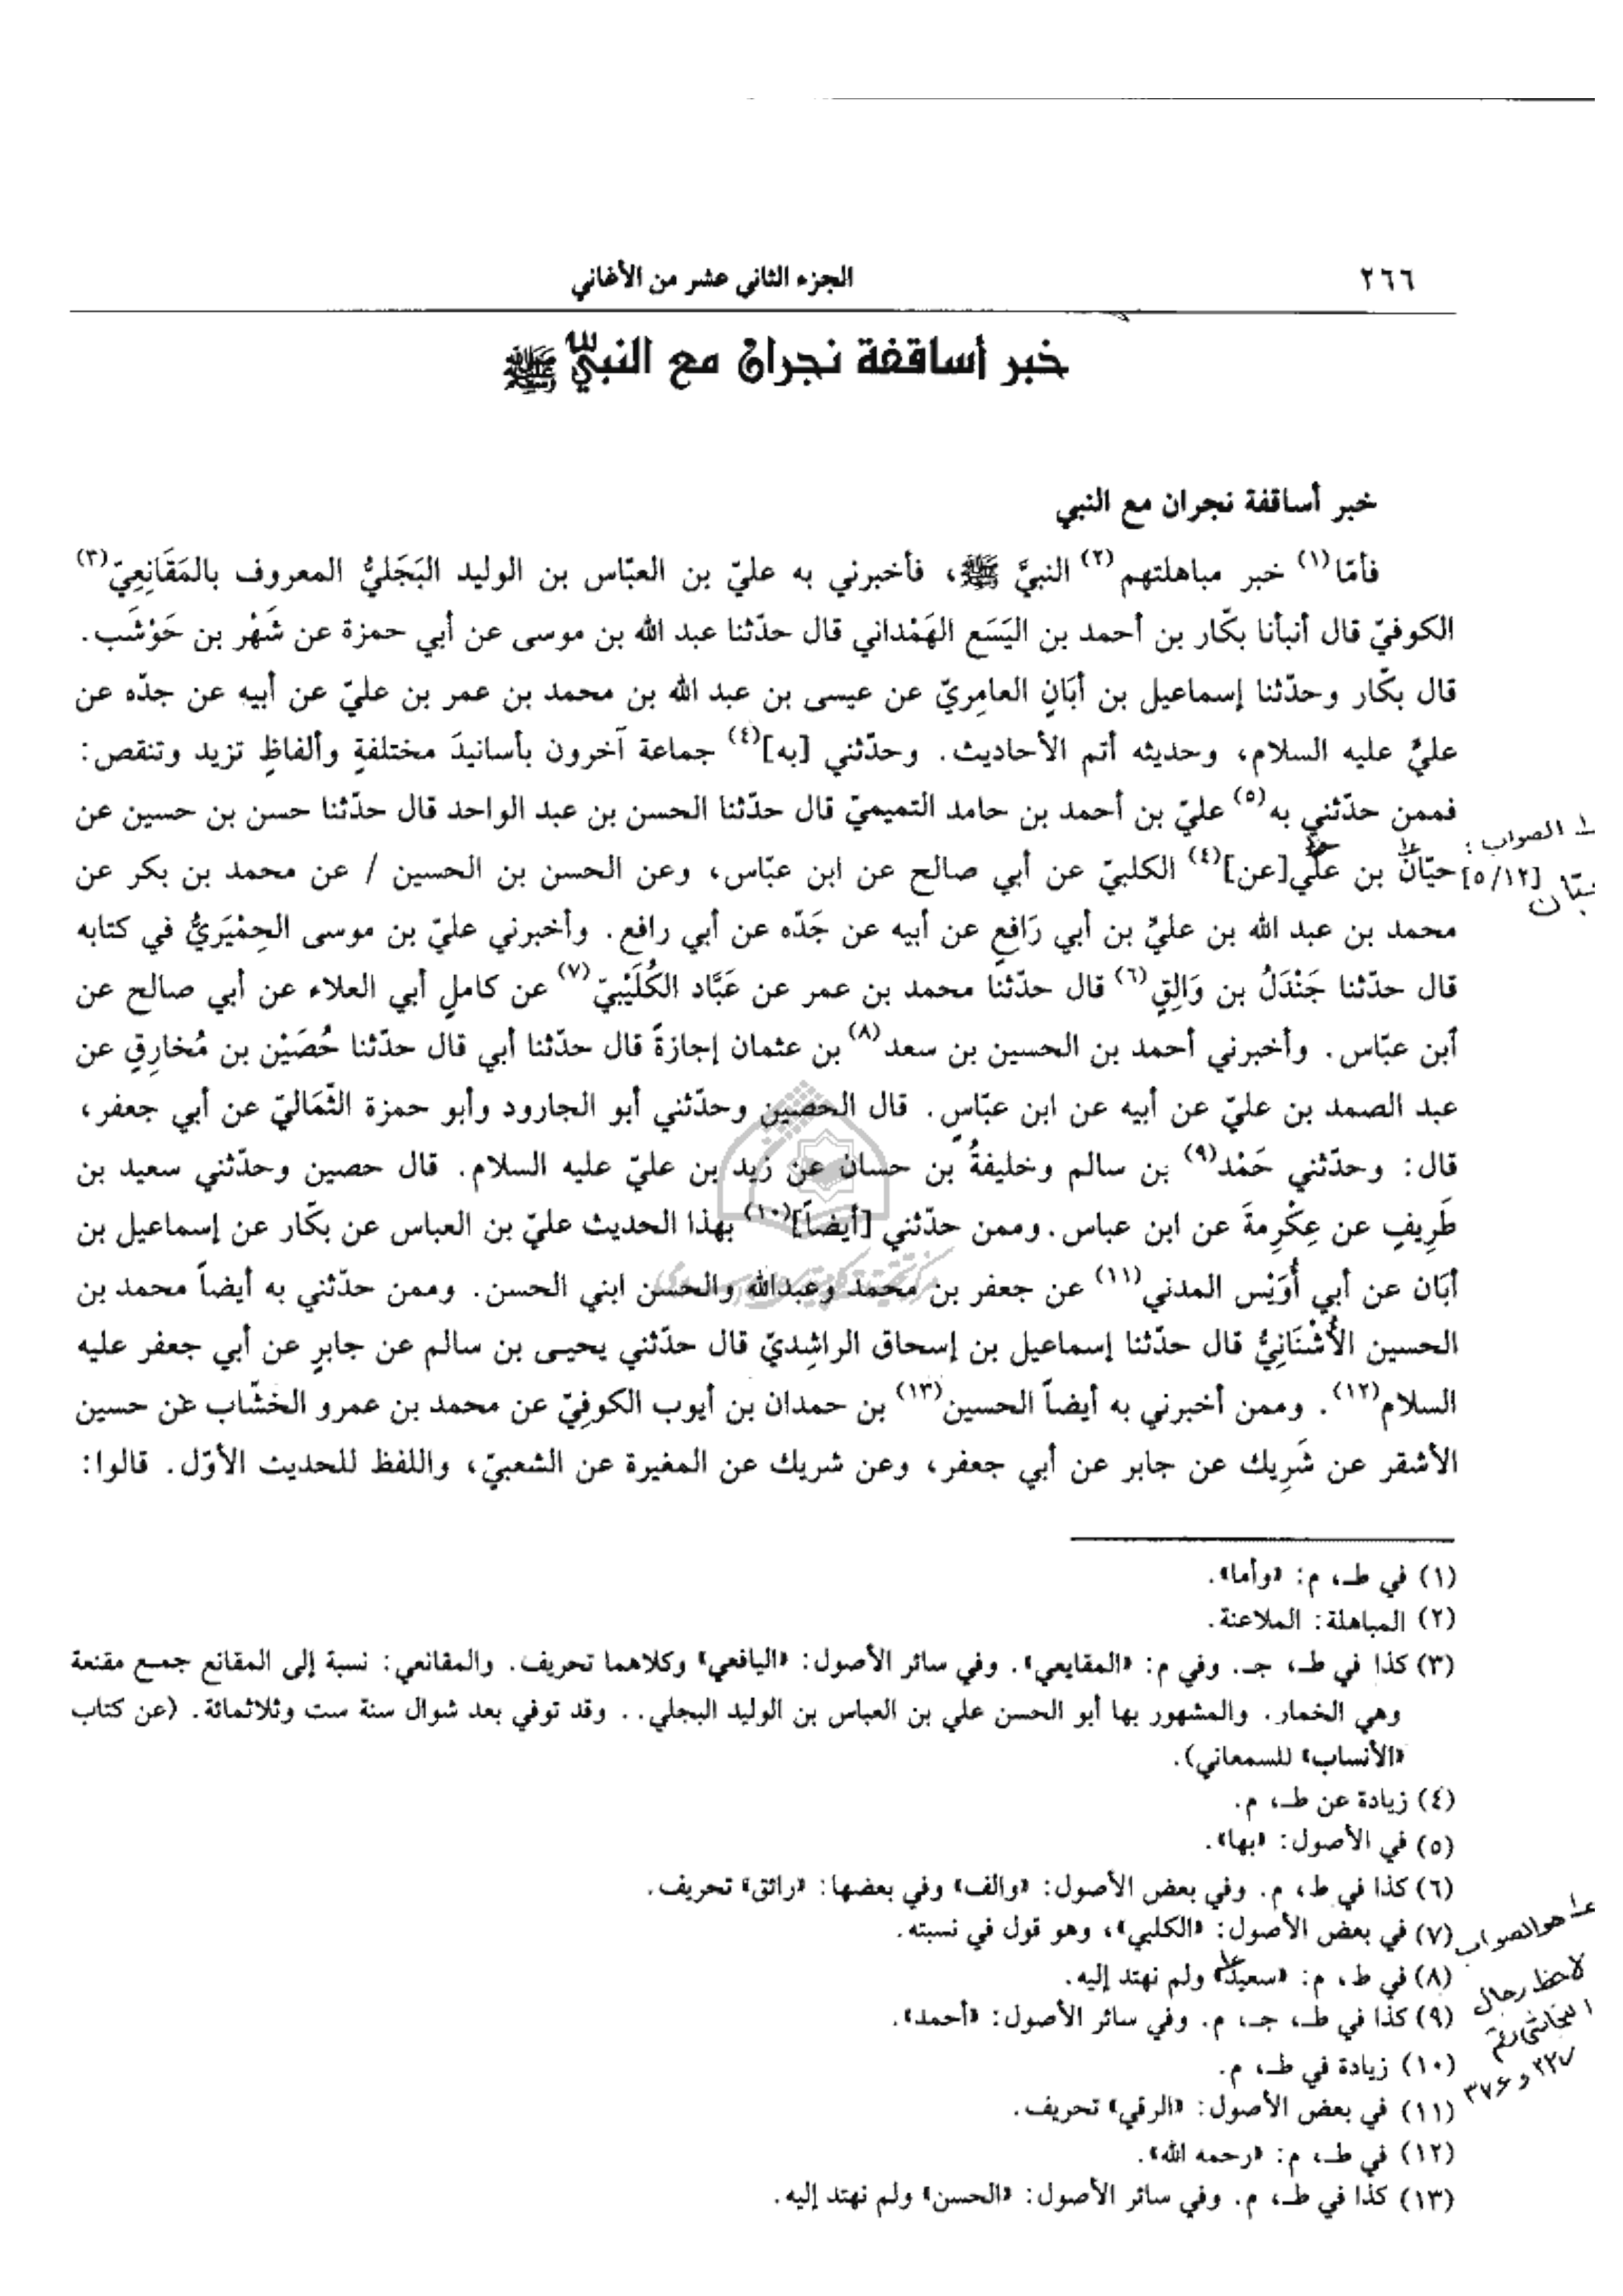 ٢٦٦
الجزء الثاني عشر من الأغاني
خبر أساقفة نجران مع النبيّ ﷺ
خبر أساقفة نجران مع النبي
فأمّا(١) خبر مباهلتهم(٢) النبيَّ ﷺ، فأخبرني به عليّ بن العبّاس بن الوليد البَجَليُّ المعروف بالمَقَانِعِيّ(٣)
الكوفيّ قال أنبأنا بكّار بن أحمد بن اليَسَع الهَمْداني قال حدّثنا عبد الله بن موسى عن أبي حمزة عن شَهْر بن حَوْشَب.
قال بكّار وحدّثنا إسماعيل بن أبَانٍ العامِريّ عن عيسى بن عبد الله بن محمد بن عمر بن عليّ عن أبيه عن جدّه عن
عليٍّ عليه السلام، وحديثه أتم الأحاديث. وحدّثني [به](٤) جماعة آخرون بأسانيدَ مختلفةٍ وألفاظٍ تزيد وتنقص:
فممن حدّثني به(٥) عليّ بن أحمد بن حامد التميميّ قال حدّثنا الحسن بن عبد الواحد قال حدّثنا حسن بن حسين عن
الصواب :
حيّان بن علي[عن](٤) الكلبيّ عن أبي صالح عن ابن عبّاس، وعن الحسن بن الحسين / عن محمد بن بكر عن
[٥/١٢]
محمد بن عبد الله بن عليِّ بن أبي رَافِعٍ عن أبيه عن جَدّه عن أبي رافع. وأخبرني عليّ بن موسى الحِمْيَرِيُّ في كتابه
قال حدّثنا جَنْدَلُ بن وَالِقٍ(٦) قال حدّثنا محمد بن عمر عن عَبَّاد الكُلَيْبيّ(٧) عن كاملٍ أبي العلاء عن أبي صالح عن
ٱبن عبّاس. وأخبرني أحمد بن الحسين بن سعد(٨) بن عثمان إجازةً قال حدّثنا أبي قال حدّثنا حُصَيْن بن مُخارِقٍ عن
عبد الصمد بن عليّ عن أبيه عن ابن عبّاسٍ. قال الحصين وحدّثني أبو الجارود وأبو حمزة الثّمَاليّ عن أبي جعفر،
قال: وحدّثني حَمْد(٩) بن سالم وخليفةُ بن حسان عن زيد بن عليّ عليه السلام. قال حصين وحدّثني سعيد بن
طَرِيفٍ عن عِكْرِمةَ عن ابن عباس. وممن حدّثني [أيضاً](١٠) بهذا الحديث عليّ بن العباس عن بكّار عن إسماعيل بن
أبَان عن أبي أُوَيْس المدني(١١) عن جعفر بن محمد وعبدالله والحسن ابني الحسن. وممن حدّثني به أيضاً محمد بن
الحسين الأُشْنَانِيُّ قال حدّثنا إسماعيل بن إسحاق الراشِديّ قال حدّثني يحيى بن سالم عن جابرٍ عن أبي جعفر عليه
السلام(١٢). وممن أخبرني به أيضاً الحسين(١٣) بن حمدان بن أيوب الكوفِيّ عن محمد بن عمرو الخشّاب عن حسين
الأشقر عن شَرِيك عن جابر عن أبي جعفر، وعن شريك عن المغيرة عن الشعبيّ، واللفظ للحديث الأوّل. قالوا:
(١) في ط، م: «وأما».
(٢) المباهلة: الملاعنة.
(٣) كذا في ط، جـ. وفي م: «المقايعي». وفي سائر الأصول: «اليافعي» وكلاهما تحريف. والمقانعي: نسبة إلى المقانع جمع مقنعة
وهي الخمار. والمشهور بها أبو الحسن علي بن العباس بن الوليد البجلي.. وقد توفي بعد شوال سنة ست وثلاثمائة. (عن كتاب
«الأنساب» للسمعاني).
(٤) زيادة عن ط، م.
(٥) في الأصول: «بها».
(٦) كذا في ط، م. وفي بعض الأصول: «والف» وفي بعضها: «راثق» تحريف.
(٧) في بعض الأصول: «الكلبي»، وهو قول في نسبته.
هو الصواب
(٨) في ط، م: «سعيد» ولم نهتد إليه.
لاحظ رجال
(٩) كذا في ط، جـ، م. وفي سائر الأصول: «أحمد».
النجاشي رقم
(١٠) زيادة في ط، م.
(١١) في بعض الأصول: «الرقي» تحريف.
(١٢) في ط، م: «رحمه الله».
(١٣) كذا في ط، م. وفي سائر الأصول: «الحسن» ولم نهتد إليه.